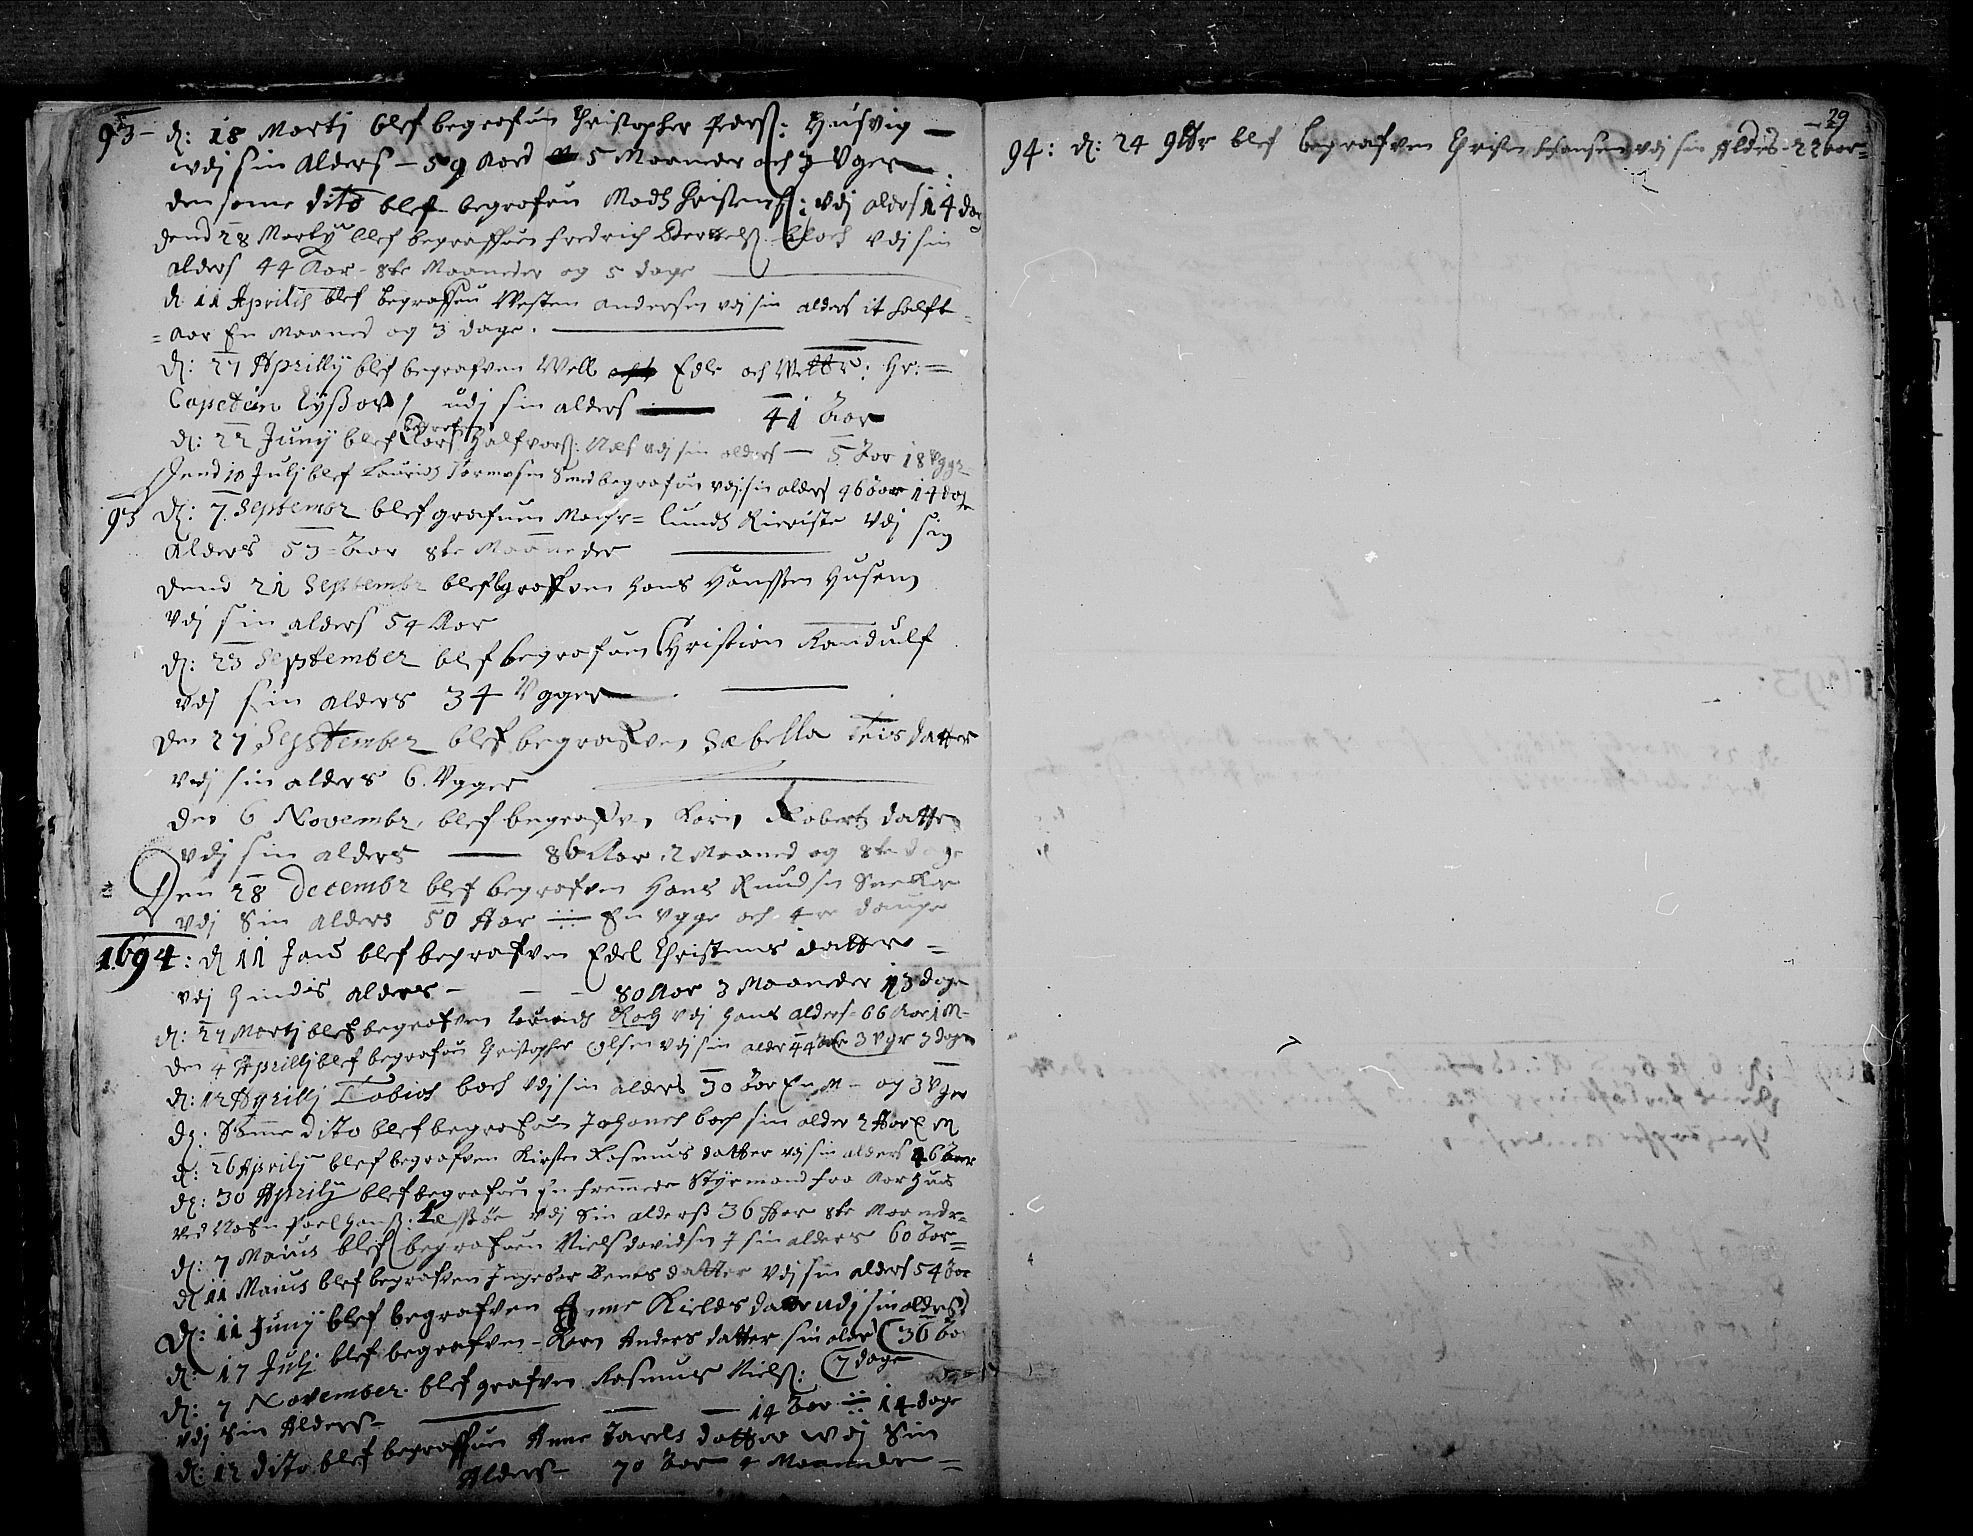 93 - d: 18 Martj blef begrafuen Christopher Pederß: Husvig —
wdj sin Alders - 59 Aard 5 Maaneder och 3 Vger
den same dito blef begrafuen Madtz Christens: vdj alders 14 dag
dend 28 Marty blef begraffuen fredrich Bertelß. bloch vdj sin
alders 44 Aar - 8te Maaneder og 5 dage
d: 11 Aprilis blef begraffuen Westen Andersen vdj sin alders it halft
= Aar En Maaned og 3 dage.
d: 27 Aprilly blef begrafven Well Edle och Hr: =
Capetein udj sin alders 41 Aar
d: 22 Juny blef begrafven Lars Halfvorß: Næs vdj sin alders — 5 Aar 18 Vgger
Dend 10 Julj blef Lauridtz Tormosen Smed begrafuen vdj sin alders 46 Aar 14 dage
93 d: 7. Septembr blef grafuen lundtz vdj sin
Alders 53 - Aar 8te Maaneder
Dend 21 Septembr blef bgraffven Hans Hanssen Husum
Vdj sin alders 54 Aar
d: 23 September blef begrafuen Christian Randulf
vdj sin alders 34 Vgger
Den 27 September blef begrafven Sabella Teis datter
vdj sin alders 6. Vgger
Den 6 Novembr, blef begrafven Karn Roberts datter
vdj sin alders — 86 Aar 2 Maaned og 8te dage
Den 28 Decembr blef begrafven Hans Knudsn Snecker
vdj Sin alders 50 Aar En Vgge och 4re dauge
1694: d 11 Jan blef begrafven Edel Christens datter =
vdj Hindis alders - 80 Aar 3 Maaneder 13 dage
d: 27 Martj blef begrafven Lauridtz vdj Hans alders 66 Aar 1 M-
Den 4 Aprillj blef begrafuen Christopher Olsen vdj sin alder 44 Aar 3 Vgr 3 dage
d: 12 Aprillj Tobias boch vdj sin alders 30 Aar En M - og 3 Vger
d: Samme dito blef begrafuen Johanes boch sin alder 2 Aar E M
d: 26 Aprily blef begrafven Kirsten Rasmus datter vdj sin alders 46 Aar
d: 30 Aprily blef begrafuen En fremmede Styrmand fra Aarhuus
ved Nafn Poel Hanß: Læssøe vdj Sin alderß 36 Aar 8te Maaneder
d: 7 Maius blef begrafuen Niels davidsn J sin alders 60 Aar =
d 11 Maius blef begrafven Ingebor Bents datter vdj sin alders 54 Aar
D: 11 Juny blef begrafven Anne Kields datter udj sin alders
d: 17 Julj blef begrafven - Karn Anders datter sin alder (36 Aar
d: 7 November blef grafven Rasmus Nielß: (7 dage
vdj Sin Alders - 14 Aar 14 dage
d: 12 dito blef begraffuen Anne Jarels datter wdj Sin
Alders - 70 Aar 4 Maaneder =
29
94: d: 24 9br blef begrafven Christen Hansen vdj sin Alders - 22 Aar =